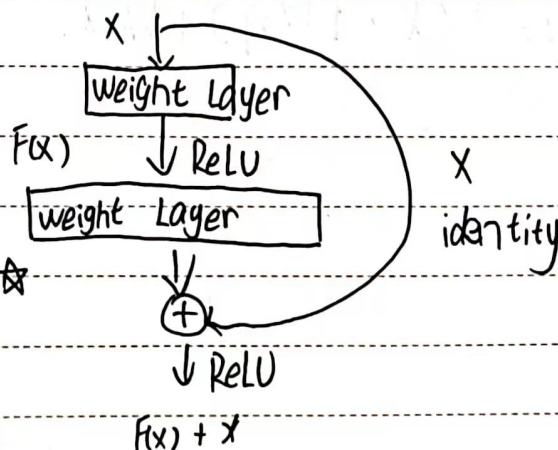 X
weight Layer
F(x)
ReLU
X
weight Layer
identity
☆
+
ReLU
F(x) + X